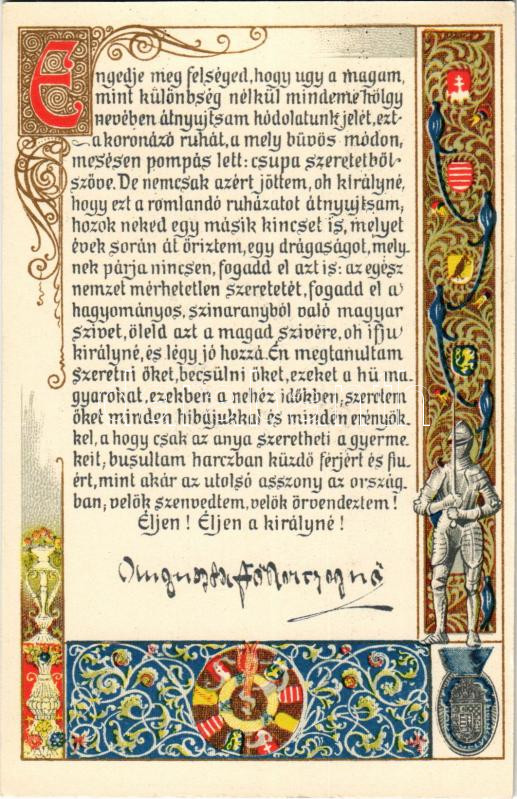 Engedje meg felséged, hogy ugy a magam,
mint különbség nélkül mindeme hölgy
nevében átnyujtsam hódolatunk jelét, ezt
a koronázó ruhát, a mely büvös módon,
mesésen pompás lett: csupa szeretetből
szőve. De nemcsak azért jöttem, oh királyné,
hogy ezt a romlandó ruházatot átnyujtsam,
hozok neked egy másik kincset is, melyet
évek során át őriztem, egy drágaságot, mely-
nek párja nincsen, fogadd el azt is: az egész
nemzet mérhetetlen szeretetét, fogadd el a
hagyományos, szinaranyból való magyar
szivet, öleld azt a magad szivére, oh ifju
királyné, és légy jó hozzá. Én megtanultam
szeretni őket, becsülni őket, ezeket a hü ma
gyarokat, ezekben a nehéz időkben, szeretem
őket minden hibájukkal és minden erényök-
kel, a hogy csak az anya szeretheti a gyerme-
keit; busultam harczban küzdő férjért és fiu-
ért, mint akár az utolsó asszony az ország-
ban; velök szenvedtem, velök örvendeztem!
Éljen! Éljen a királyné!
Auguszta főherczegnő